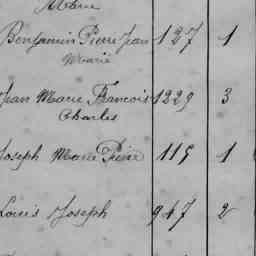 Marie
Benjamin Pierre Jean 127 1
Marie
Jean Marie Francois 1229 3
Charles
Joseph Marie Pierre 115 1
Louis Joseph 947 2